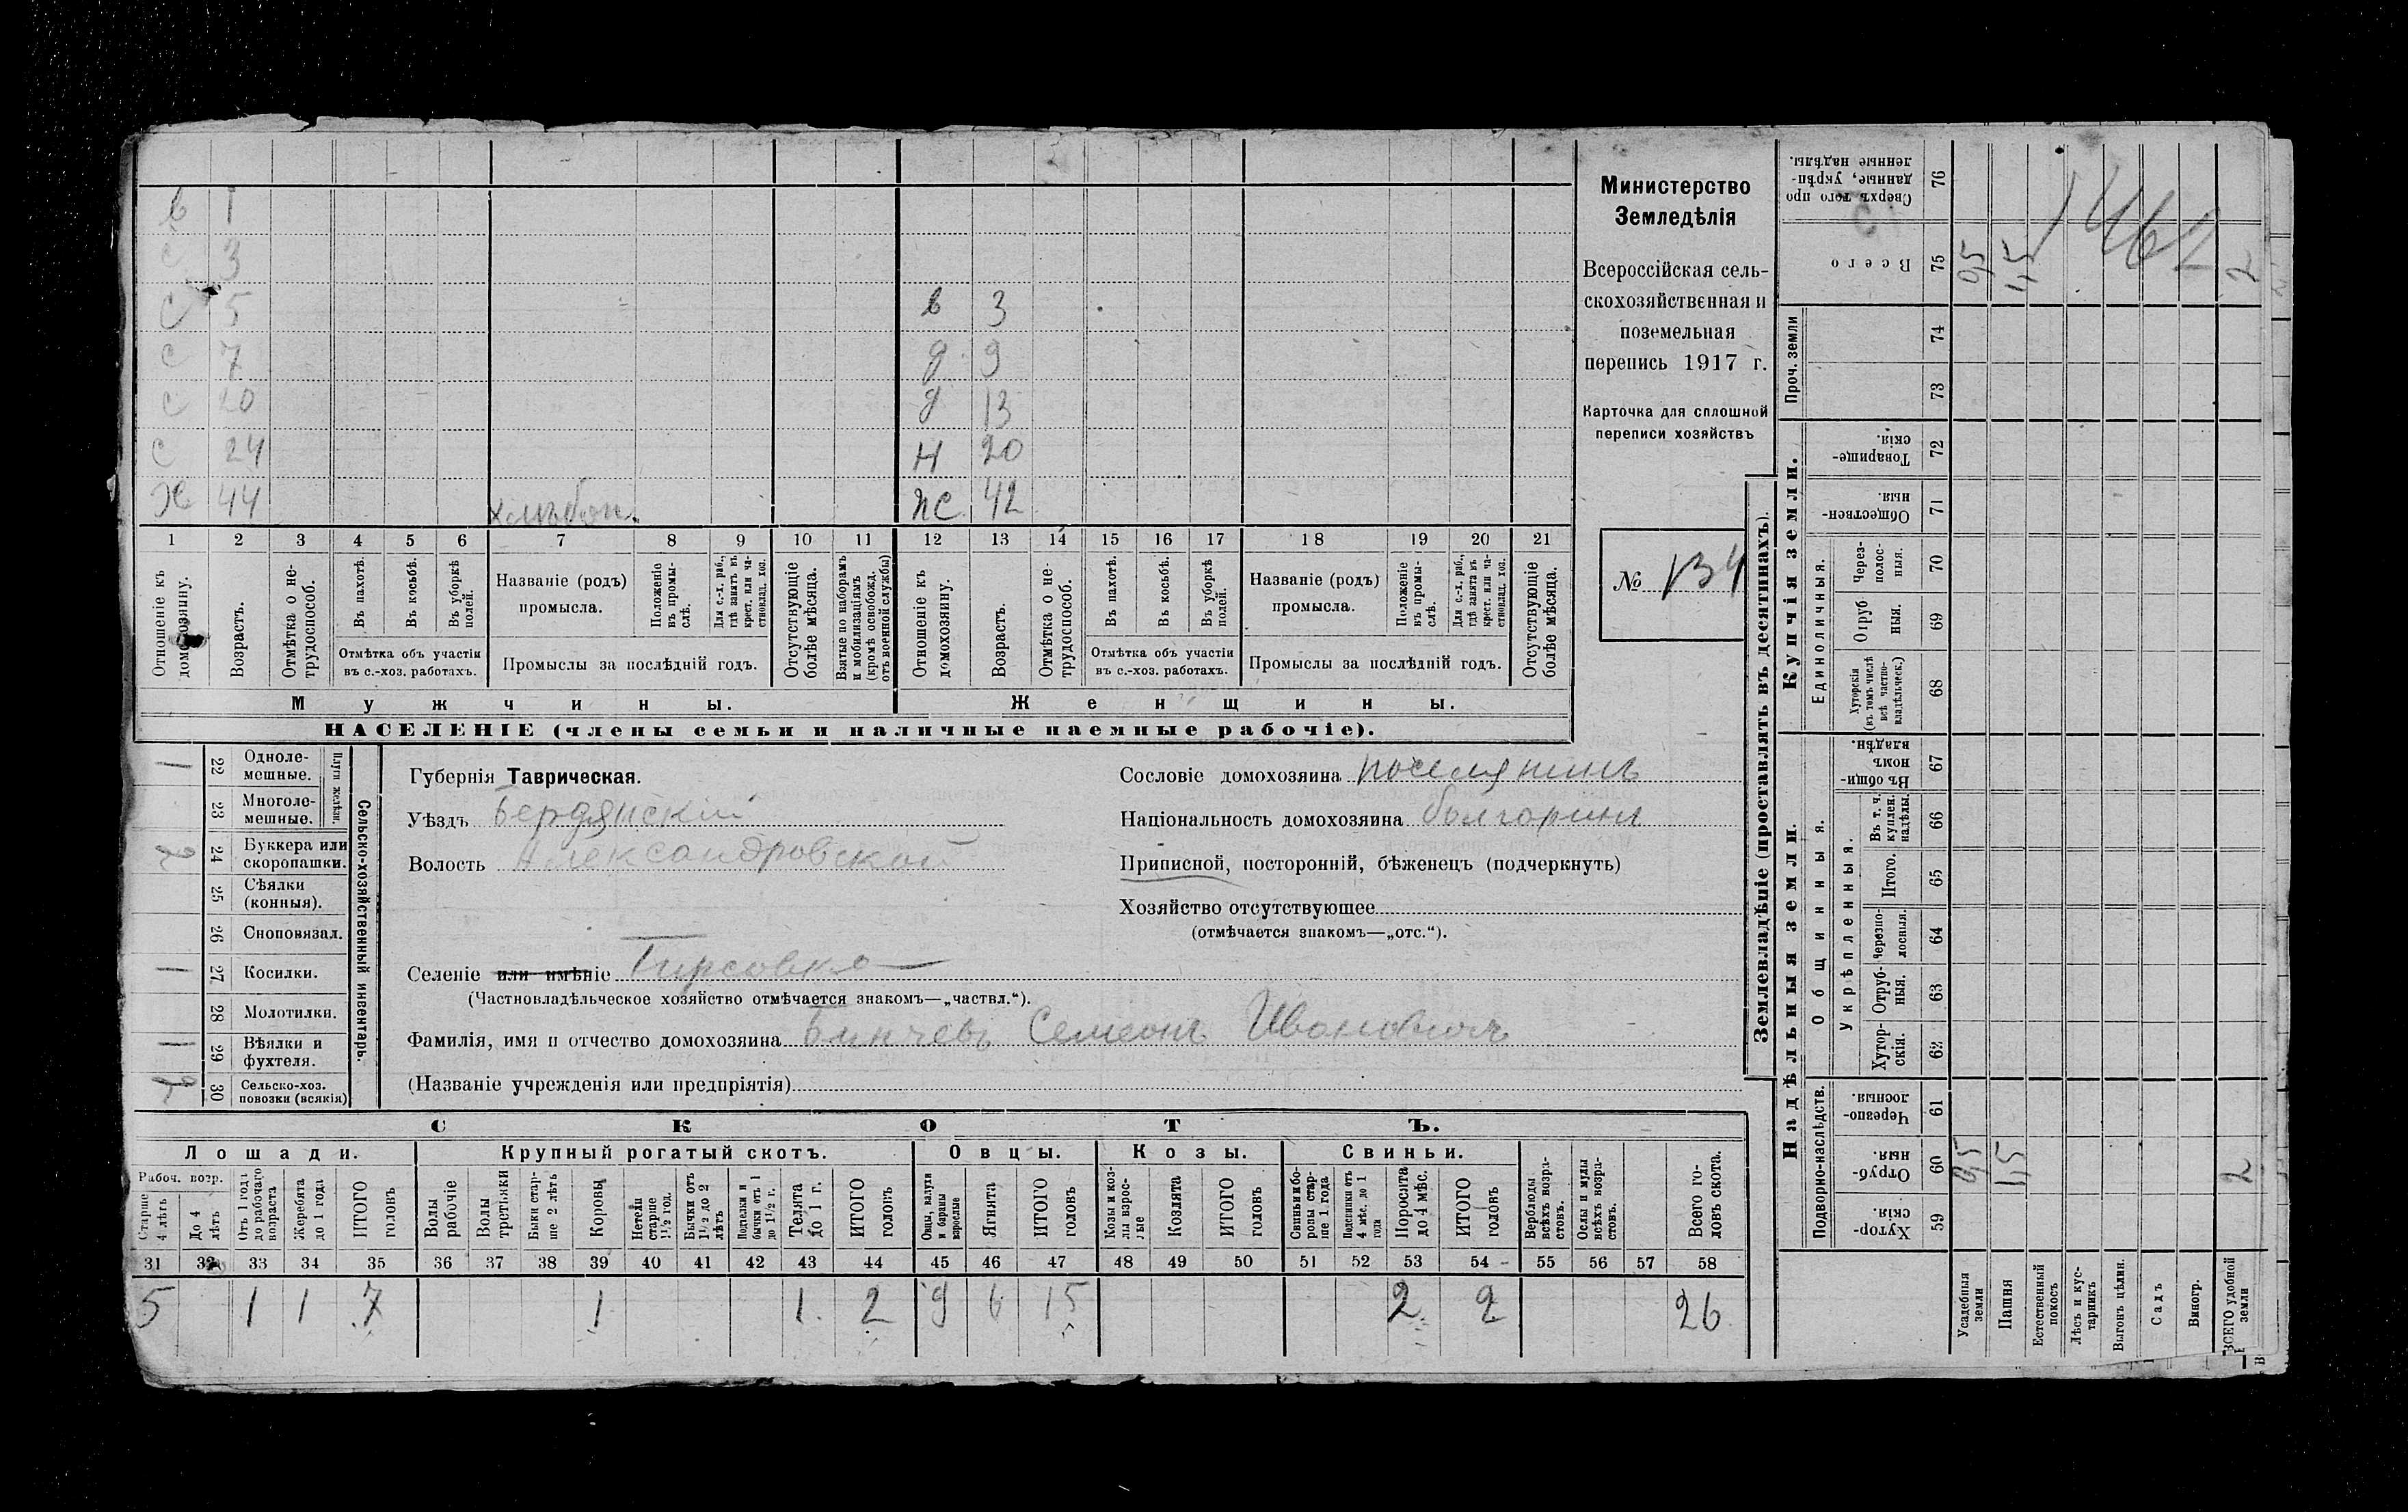 в 1
с 3
с 5 в 3
с 7 д 9
с 20 д 13
с 24 н 20
Х 44 хлѣбоп. ж 42
1 2 3 4 5 6 7 8 9 10 11 12 13 14 15 16 17 18 19 20 21
Отношеніе къ домохозяину.
Возрастъ.
Отмѣтка о нетрудоспособ.
Въ пахотѣ.
Въ косьбѣ.
Въ уборкѣ полей.
Отмѣтка объ участіи въ с.-хоз. работахъ.
Названіе (родъ) промысла.
Положеніе въ промыслѣ.
Для с.-х. раб., гдѣ занятъ въ крест. или частновлад. хоз.
Промыслы за послѣдній годъ.
Отсутствующіе болѣе мѣсяца.
Взятые по наборамъ и мобилизаціямъ (кромѣ освобожд. отъ военной службы)
Отношеніе къ домохозяину.
Возрастъ.
Отмѣтка о нетрудоспособ.
Въ пахотѣ.
Въ косьбѣ.
Въ уборкѣ полей.
Отмѣтка объ участіи въ с.-хоз. работахъ.
Названіе (родъ) промысла.
Положеніе въ промыслѣ.
Для с.-х. раб., гдѣ занята въ крест. или частновлад. хоз.
Промыслы за послѣдній годъ.
Отсутствующіе болѣе мѣсяца.
Мужчины. Женщины.
НАСЕЛЕНІЕ (члены семьи и наличные наемные рабочіе).
Министерство
Земледѣлія
Всероссійская сель-
скохозяйственная и
поземельная
перепись 1917 г.
Карточка для сплошной
переписи хозяйствъ
№ 134
1 22 Однолемешные.
23 Многолемешные.
Плуги желѣзн.
2 24 Буккера или скоропашки.
25 Сѣялки (конныя).
26 Сноповязал.
1 27 Косилки.
28 Молотилки.
1 29 Вѣялки и фухтеля.
2 30 Сельско-хоз. повозки (всякія)
Сельско-хозяйственный инвентарь.
Губернія Таврическая.
Уѣздъ Бердянскій
Волость Александровской
Селеніе или имѣніе Гирсовка
(Частновладѣльческое хозяйство отмѣчается знакомъ—„частвл.“).
Фамилія, имя и отчество домохозяина Бинчевъ Семеонъ Ивановичъ
(Названіе учрежденія или предпріятія)
Сословіе домохозяина поселянинъ
Національность домохозяина болгаринъ
Приписной, посторонній, бѣженецъ (подчеркнуть)
Хозяйство отсутствующее
(отмѣчается знакомъ—„отс.“).
СКОТЪ.
Лошади. Крупный рогатый скотъ. Овцы. Козы. Свиньи.
Рабоч. возр.
Старше 4 лѣтъ
До 4 лѣтъ
Отъ 1 года до рабочаго возраста
Жеребята до 1 года
ИТОГО головъ
Волы рабочіе
Волы третьяки
Быки старше 2 лѣтъ
Коровы
Нетели старше 1½ год.
Бычки отъ 1½ до 2 лѣтъ
Подтелки и бычки отъ 1 до 1½ г.
Телята до 1 г.
ИТОГО головъ
Овцы, валухи и бараны взрослые
Ягнята
ИТОГО головъ
Козы и козлы взрослые
Козлята
ИТОГО головъ
Свиньи и боровы старше 1 года
Подсвинки отъ 4 мѣс. до 1 года
Поросята до 4 мѣс.
ИТОГО головъ
Верблюды всѣхъ возрастовъ.
Ослы и мулы всѣхъ возрастовъ.
Всего головъ скота.
31 32 33 34 35 36 37 38 39 40 41 42 43 44 45 46 47 48 49 50 51 52 53 54 55 56 57 58
5 1 1 7 1 1 2 9 6 15 2 2 26
Землевладѣніе (проставлять въ десятинахъ).
Надѣльныя земли.
Купчія земли.
Проч. земли
Подворно-наслѣдств.
Общинныя.
Укрѣпленныя.
Единоличныя.
Сверхъ того проданные, укрѣпленные надѣлы. 76
Всего 75 0,5 1,5 2
74
73
Товарищескія. 72
Общественныя. 71
Черезполосныя. 70
Отрубныя. 69
Хуторскія (въ томъ числѣ всѣ частновладѣльческ.) 68
Въ общинномъ владѣн. 67
Въ т. ч. куплен. надѣлы. 66
Итого. 65
Черезполосныя. 64
Отрубныя. 63
Хуторскія. 62
Черезполосныя. 61
Отрубныя. 60 0,5 1,5 2
Хуторскія. 59
Усадебныя земли
Пашня
Естественный покосъ
Лѣсъ и кустарникъ
Выгонъ цѣлин.
Садъ
Виногр.
ВСЕГО удобной земли